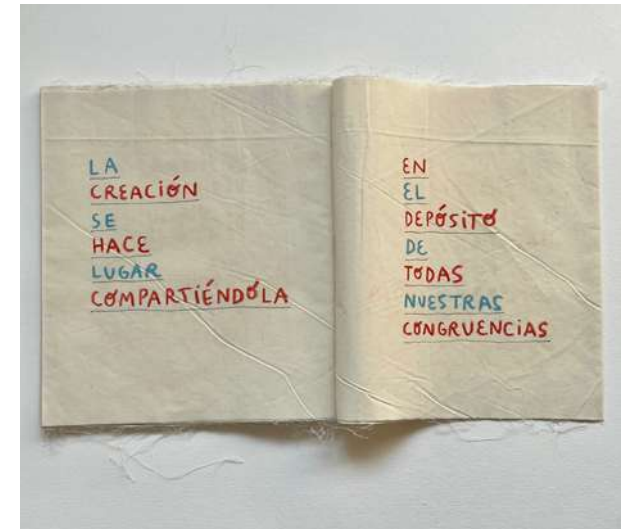 LA
CREACIÓN
SE
HACE
LUGAR
COMPARTIÉNDOLA
EN
EL
DEPÓSITO
DE
TODAS
NUESTRAS
CONGRUENCIAS